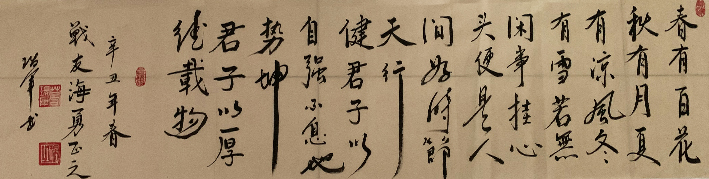 春有百花
秋有月夏
有凉風冬
有雪若無
闲事挂心
头便是人
间好時節
天行
健君子以
自强不息地
势坤
君子以厚
德載物
辛丑年春
戦友海勇正之
军书